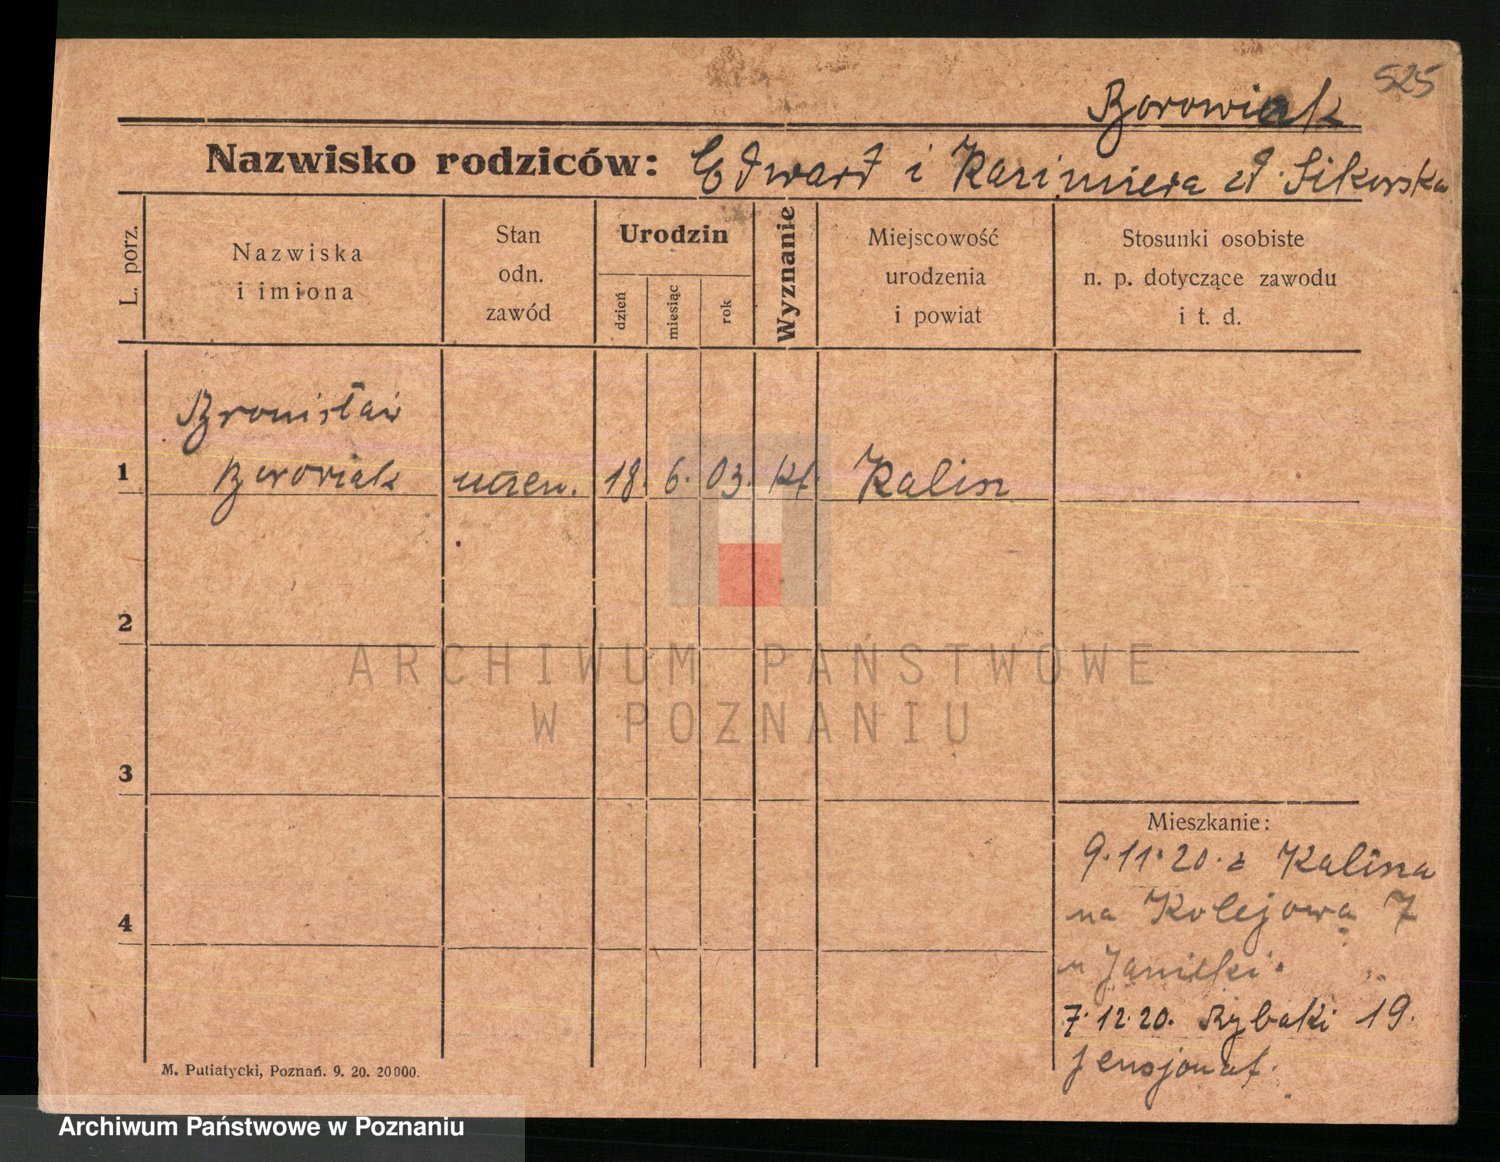 525
Borowiak
Nazwisko rodziców: Edward i Kazimiera d. Sikorska
L. porz.
Nazwiska
i imiona
Stan
odn.
zawód
Urodzin
dzień
miesiąc
rok
Wyznanie
Miejscowość
urodzenia
i powiat
Stosunki osobiste
n. p. dotyczące zawodu
i t. d.
Bronisław
1 Borowiak uczeń. 18. 6. 03. kt. Kalin
2
ARCHIWUM PAŃSTWOWE
W POZNANIU
3
Mieszkanie:
9.11.20. z Kalina
4
na Kolejowa 7
u
7.12.20. Rybaki 19.
pensjonat.
M. Putiatycki, Poznań. 9. 20. 20000.
Archiwum Państwowe w Poznaniu